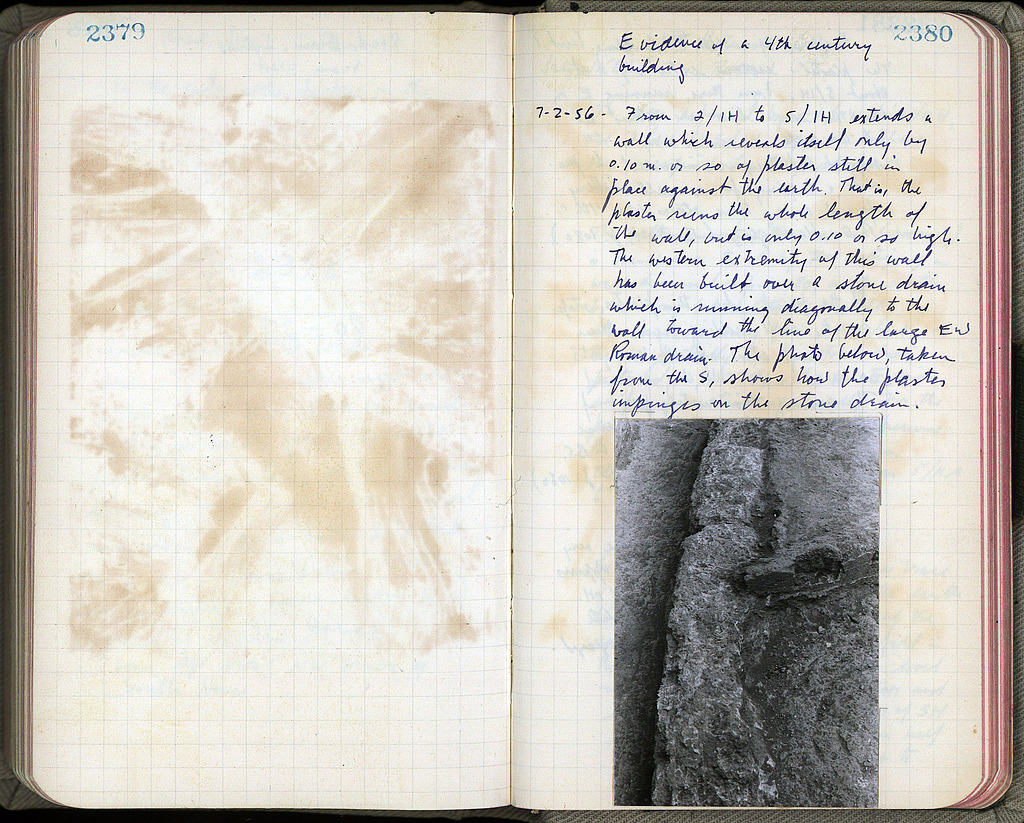 2379
2380
Evidence of a 4th century
building
7-2-56- From 2/1H to 5/1H extends a
wall which reveals itself only by
0.10 m. or so of plaster still in
place against the earth. That is, the
plaster runs the whole length of
the wall, but is only 0.10 or so high.
The western extremity of this wall
has been built over a stone drain
which is running diagonally to the
wall toward the line of the large EW
Roman drain. The photo below, taken
from the S, shows how the plaster
impinges on the stone drain.